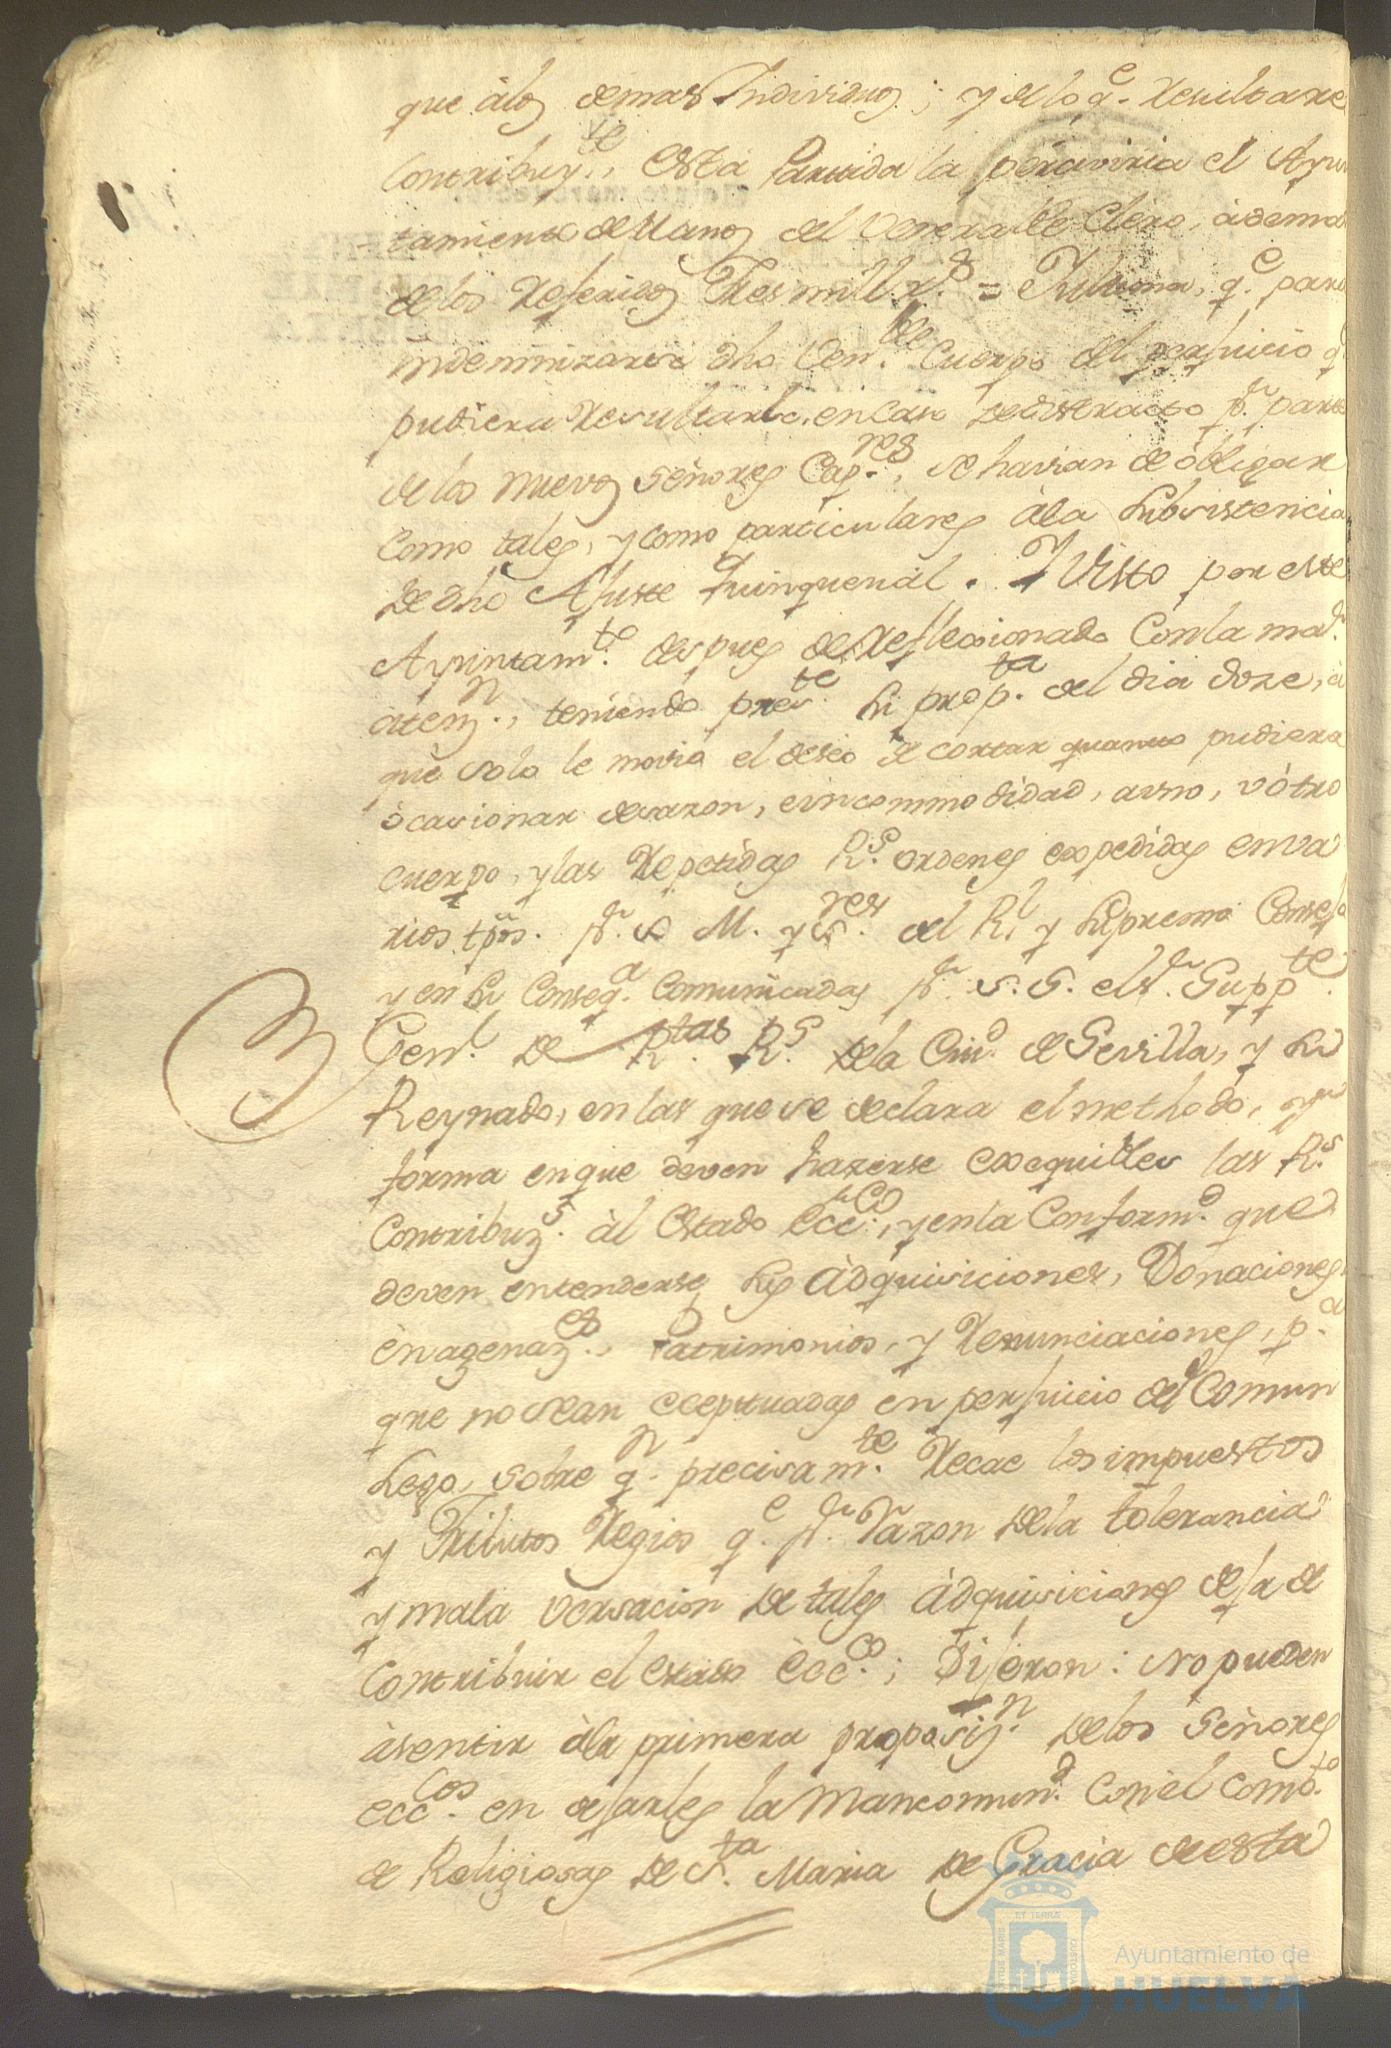 que àlos demas Individuos; y delo q.e Resultare
Contribuy.te, esta Partida la perciviria el Ayun
tamiento de Manos del Venerable Clero, àdemas
delos Referidos Tres mill r.s = Y ultima, q.e para
indemnizarse dho Ven.ble Cuerpo del perjuicio q.e
pudiera Resultarle, en Caso de distracto p.r parte
de los nuevos Señores Cap.res, se havian de òbligar
Como tales, y como particulares àla Subsistencia
de dho Ajuste Quinquenal. Y Visto por este
Ayuntam.to despues de Reflexionado Con la ma.r
àtenz.n, teniendo pres.te Su prop.ta del dia doze, à
que solo le movia el deseo de cortar quanto pudiera
òcasionar desazon, e incommodidad, a uno, v òtro
cuerpo, y las Repetidas R.s ordenes expedidas en va
rios tpos. p.r S. M. y S.res del R.l y Supremo Consejo
y en Su Conseq.a Comunicadas p.r S. S. el S.r Supp.te
Gen.l de R.tas R.s de la Ciu.d de Sevilla, y Su
Reynado, en las que se declara el methodo, y
forma en que deven hazerse exequibles las R.s
Contribuz.s àl Estado Ecc.co, y en la Conform.d que
deven entenderse Sus àdquisiciones, Donaciones
ènagenaz.es, Patrimonios, y Renunciaciones, p.a
que no sean exeptuadas en perjuicio del Comun
Lego, sobre q.n precisam.te Recae los impuestos
y Tributos Regios q.e p.r Razon de la tolerancia
y mala versacion de tales àdquisiciones deja de
Contribuir el Estado Ecc.co; Dijeron: no pueden
àsentir àla primera proposiz.n de los Señores
ecc.cos en dejarles la Mancomun.d Con el Comb.to
de Religiosas de S.ta Maria de Gracia de esta
Ayuntamiento de
HUELVA